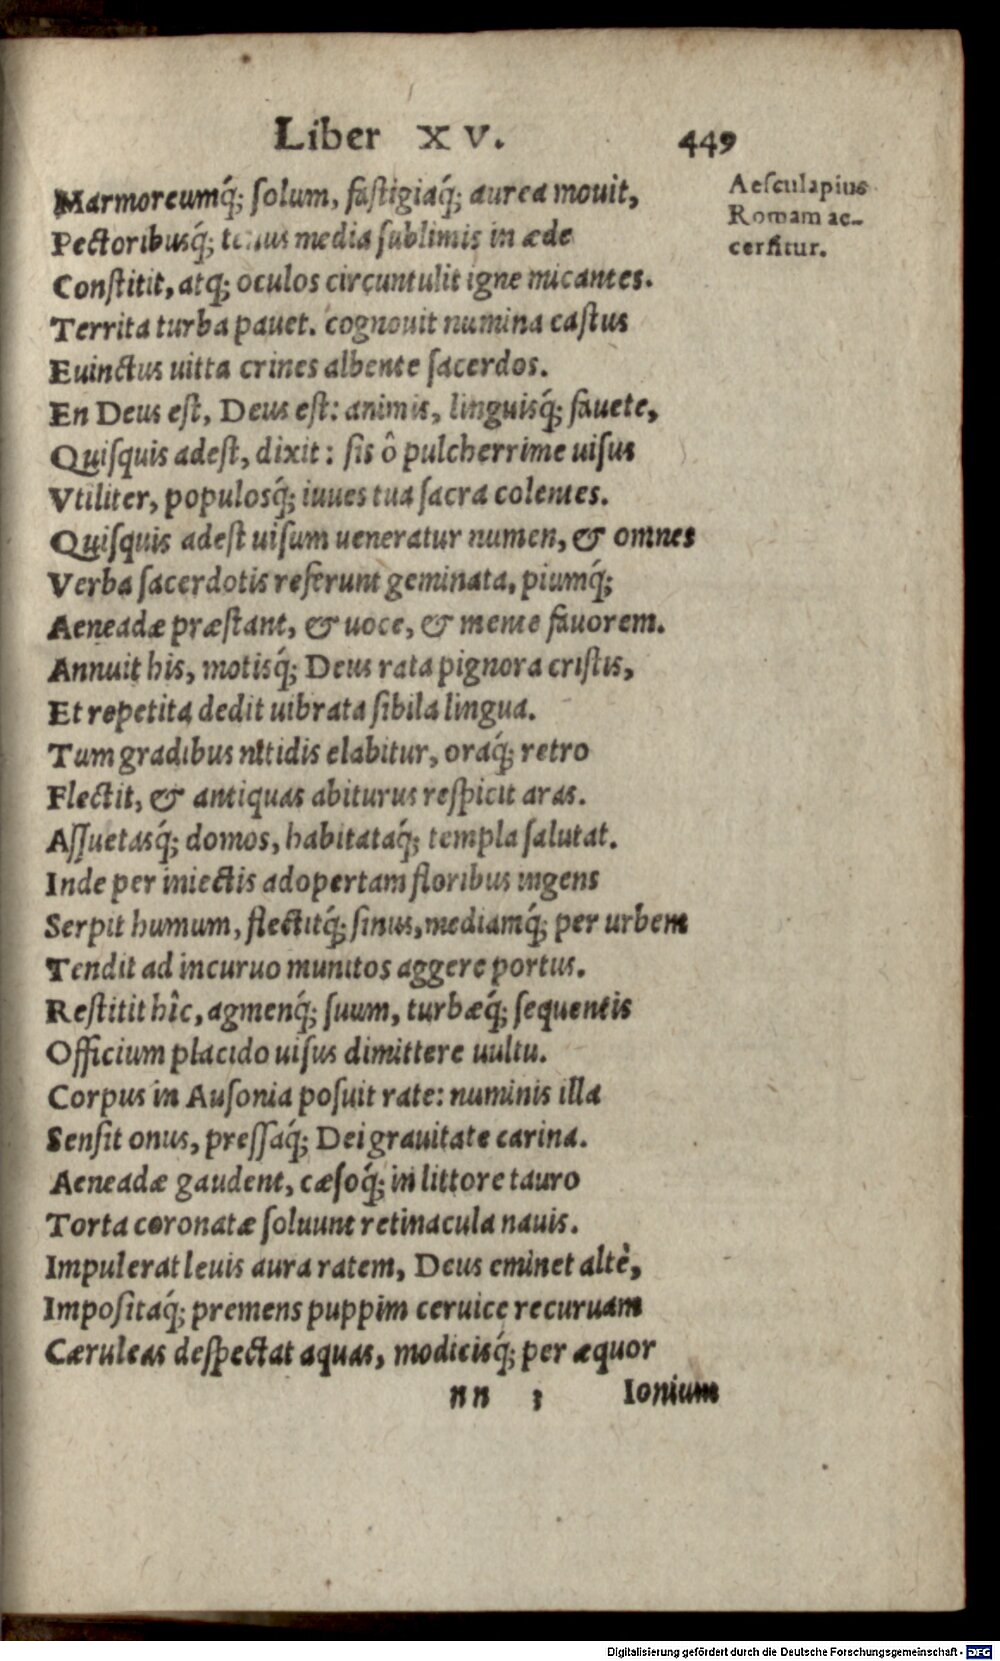 Liber XV. 449
Aesculapius
Romam ac-
cersitur.
Marmoreumq́; ſolum, faſtigiaq́; aurea mouit,
Pectoribusq́; tenus media ſublimis in æde
Conſtitit, atq; oculos circuntulit igne micantes.
Territa turba pauet. cognouit numina caſtus
Euinctus uitta crines albente ſacerdos.
En Deus eſt, Deus eſt: animis, linguisq́; fauete,
Quiſquis adeſt, dixit: ſis ô pulcherrime uiſus
Vtiliter, populosq́; iuues tua ſacra colentes.
Quiſquis adeſt uiſum ueneratur numen, & omnes
Verba ſacerdotis referunt geminata, piumq́;
Aeneadæ præſtant, & uoce, & mente fauorem.
Annuit his, motisq́; Deus rata pignora criſtis,
Et repetita dedit uibrata ſibila lingua.
Tum gradibus nitidis elabitur, oraq́; retro
Flectit, & antiquas abiturus reſpicit aras.
Aſſuetasq́; domos, habitataq́; templa ſalutat.
Inde per iniectis adopertam floribus ingens
Serpit humum, flectitq́; ſinus, mediamq́; per urbem
Tendit ad incuruo munitos aggere portus.
Reſtitit hîc, agmenq́; ſuum, turbæq́; ſequentis
Officium placido uiſus dimittere uultu.
Corpus in Auſonia poſuit rate: numinis illa
Senſit onus, preſſaq́; Dei grauitate carina.
Aeneadæ gaudent, cæſoq́; in littore tauro
Torta coronatæ ſoluunt retinacula nauis.
Impulerat leuis aura ratem, Deus eminet altè,
Impoſitaq́; premens puppim ceruice recuruam
Cæruleas deſpectat aquas, modicisq́; per æquor
nn 3 Ionium
Digitalisierung gefördert durch die Deutsche Forschungsgemeinschaft - DFG